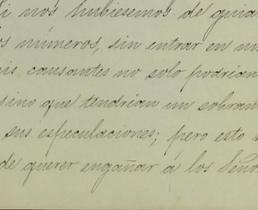 i nos hubiesemos de guia
os números, sin entrar en m
is causantes no solo podrian
sino que tendrian un sobran
sus especulaciones; pero esto
de querer engañar á los Seño